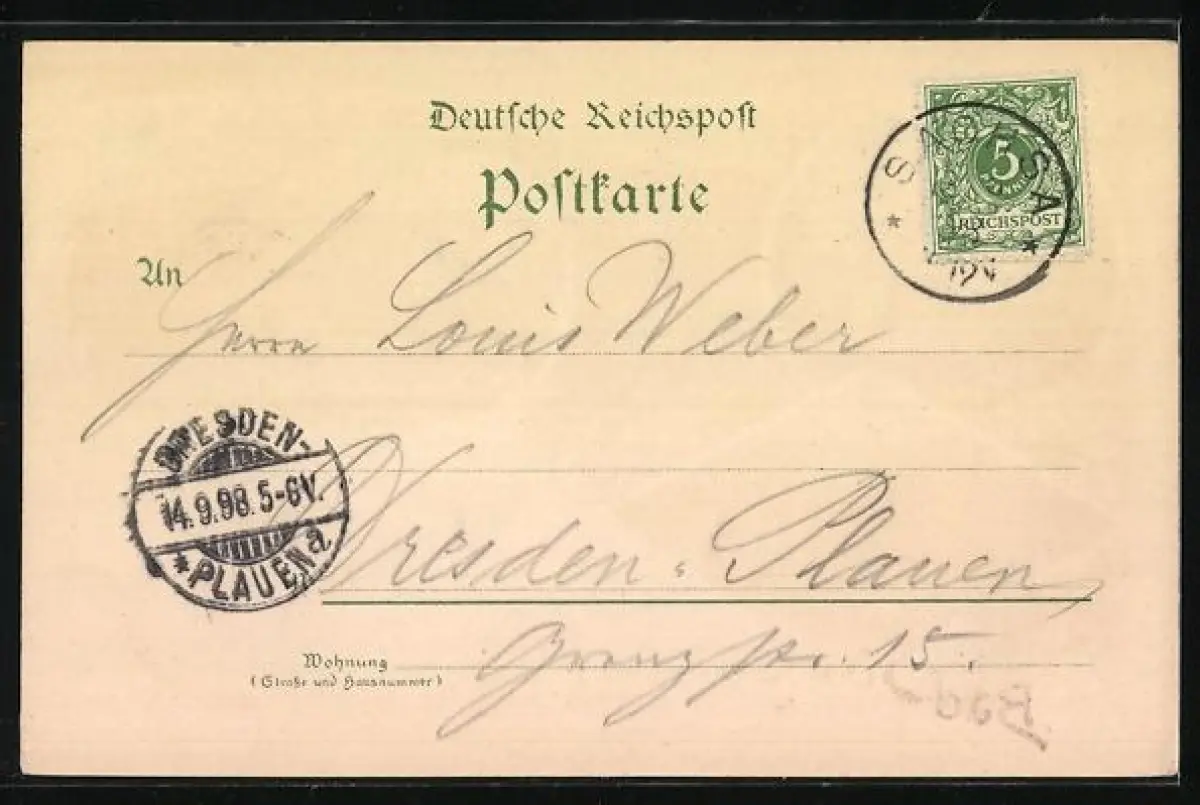 Deutsche Reichspost
Postkarte
5
PFENNIG
REICHSPOST
An
Herrn Louis Weber
DRESDEN-
14.9.98. 5-6V.
* PLAUEN a
Dresden-Plauen,
Wohnung
(Straße und Hausnummer)
15.